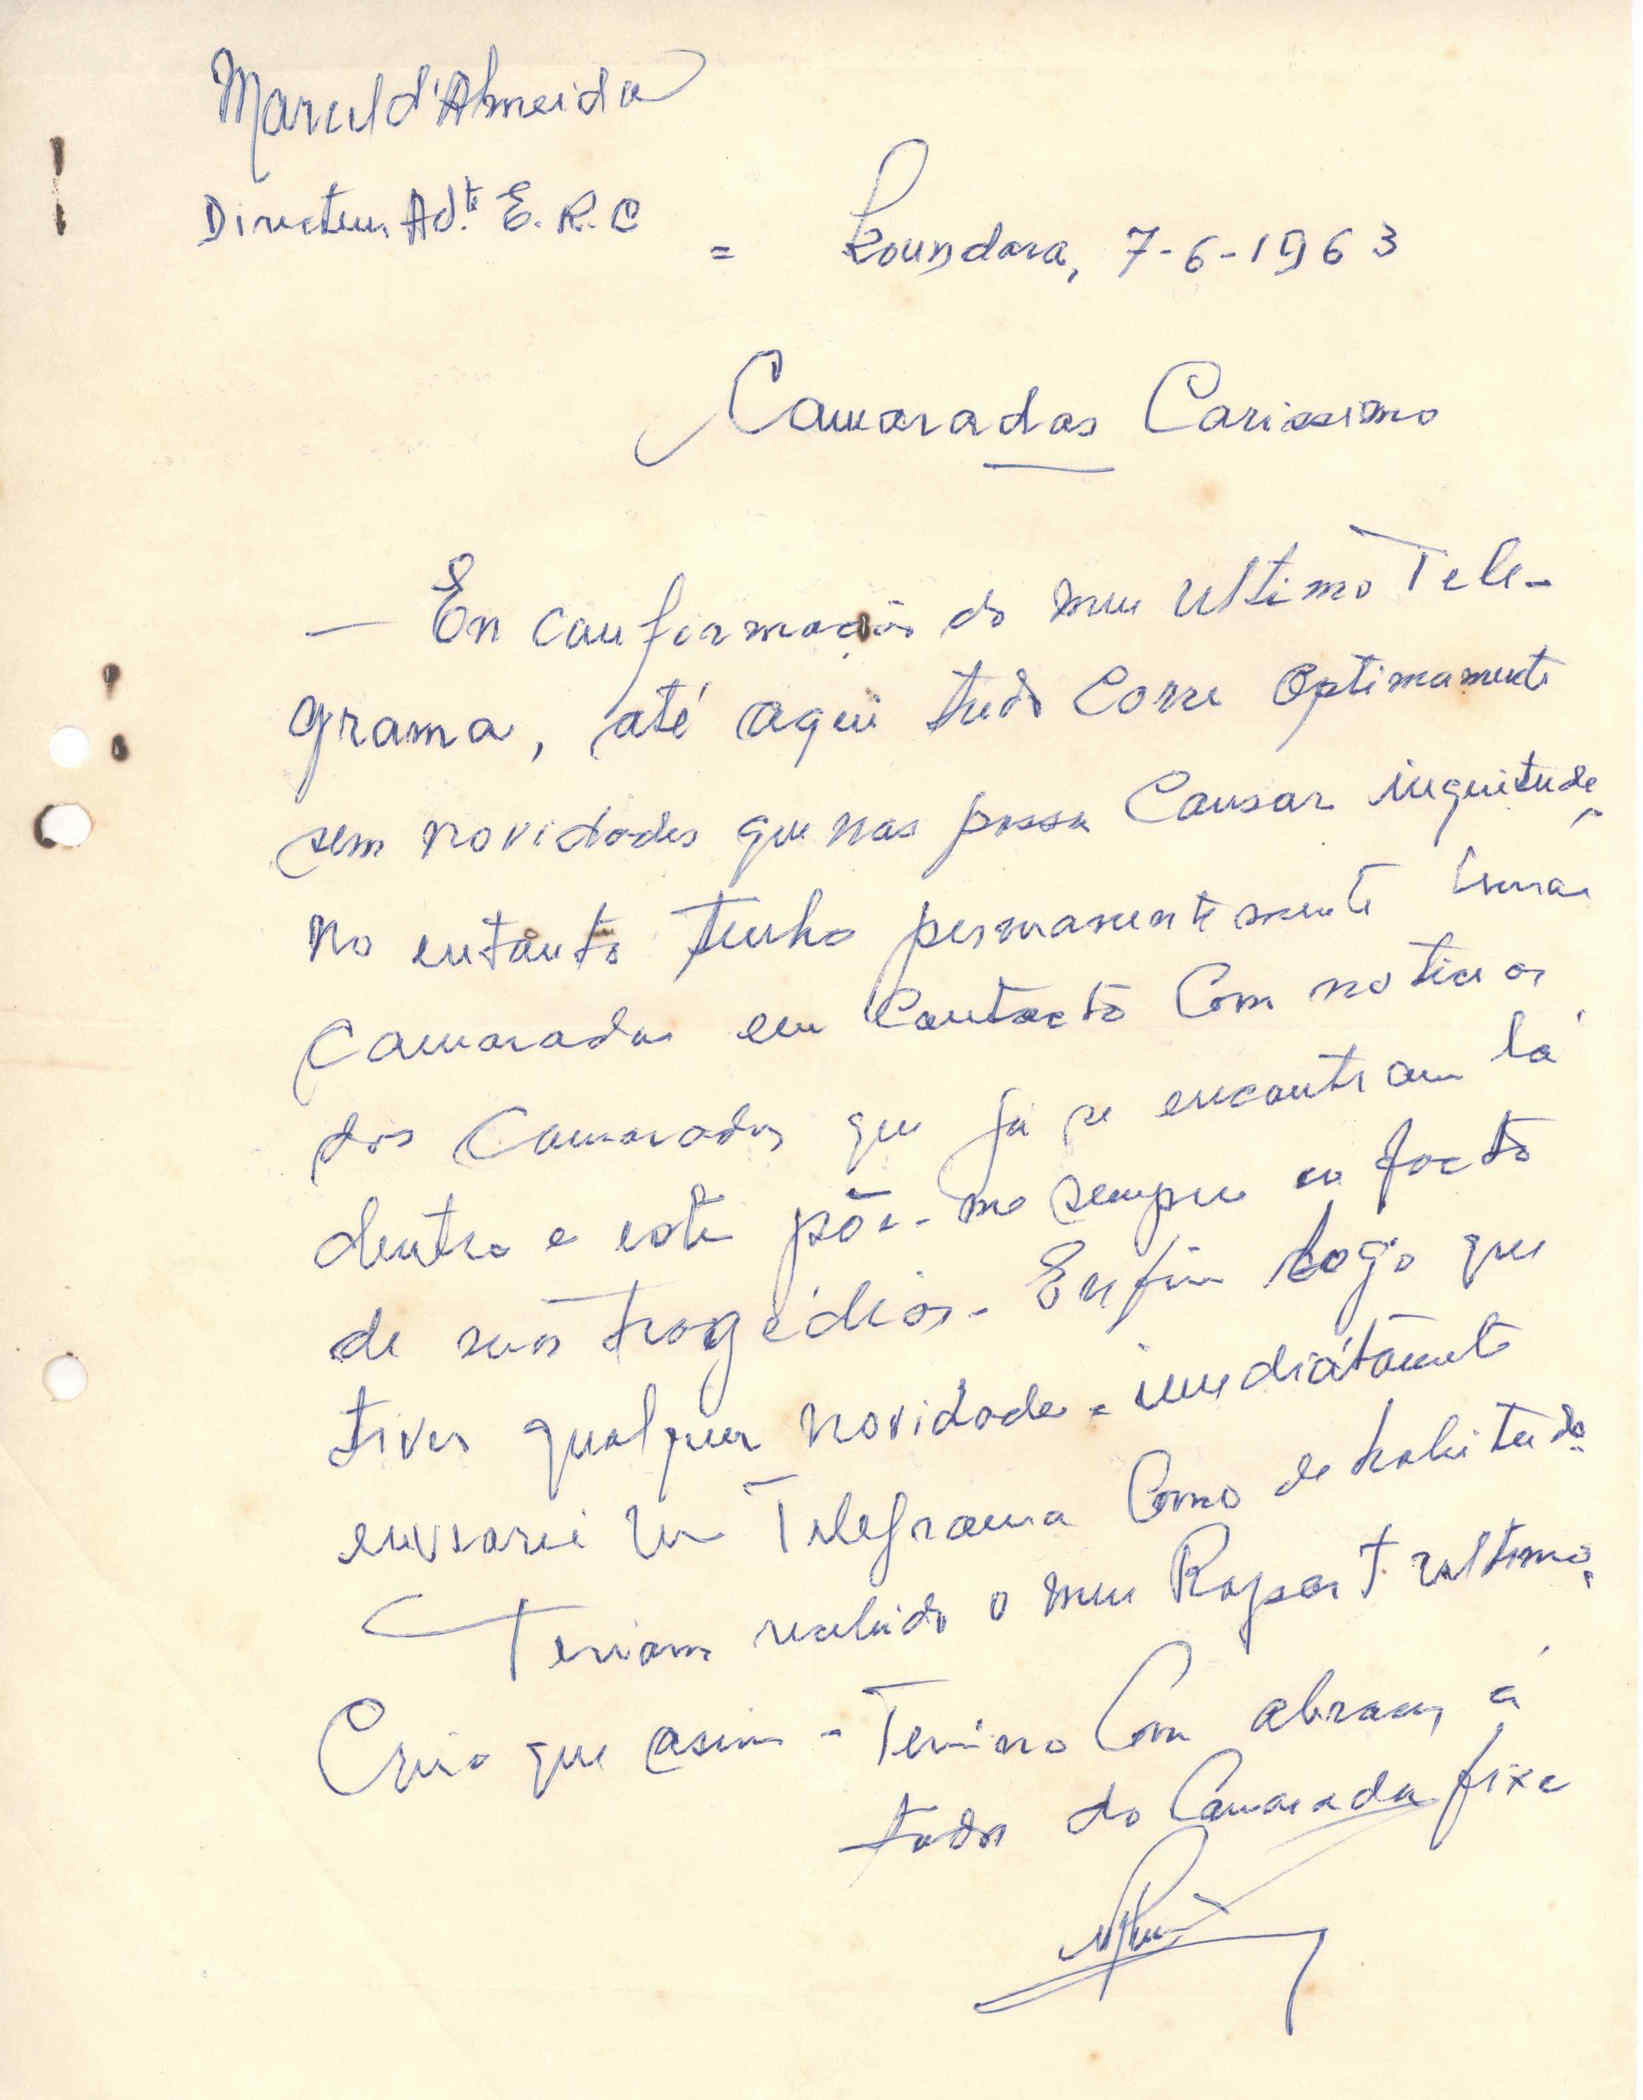 Marcel d'Almeida
Directeur Ad.te E. R. C
= Koundara, 7-6-1963
Camaradas Carissimo
— En comfirmação do meu ultimo Tele-
grama, até aqui tudo corre optimamente
sem novidades que nas possa causar inquitude,
no entanto tenho permanentemente
camaradas em contacto com noticias
dos camaradas que já se encontram lá
dentro e este põe-me sempre ao facto
de suas tragédias. Enfim logo que
tiver qualquer novidade - imediátamente
enviarei um Telegrama como de habitude.
Teriam recebido o meu Raport ultimo,
Creio que asim - Termino com abraços á
todos do Camarada fixe